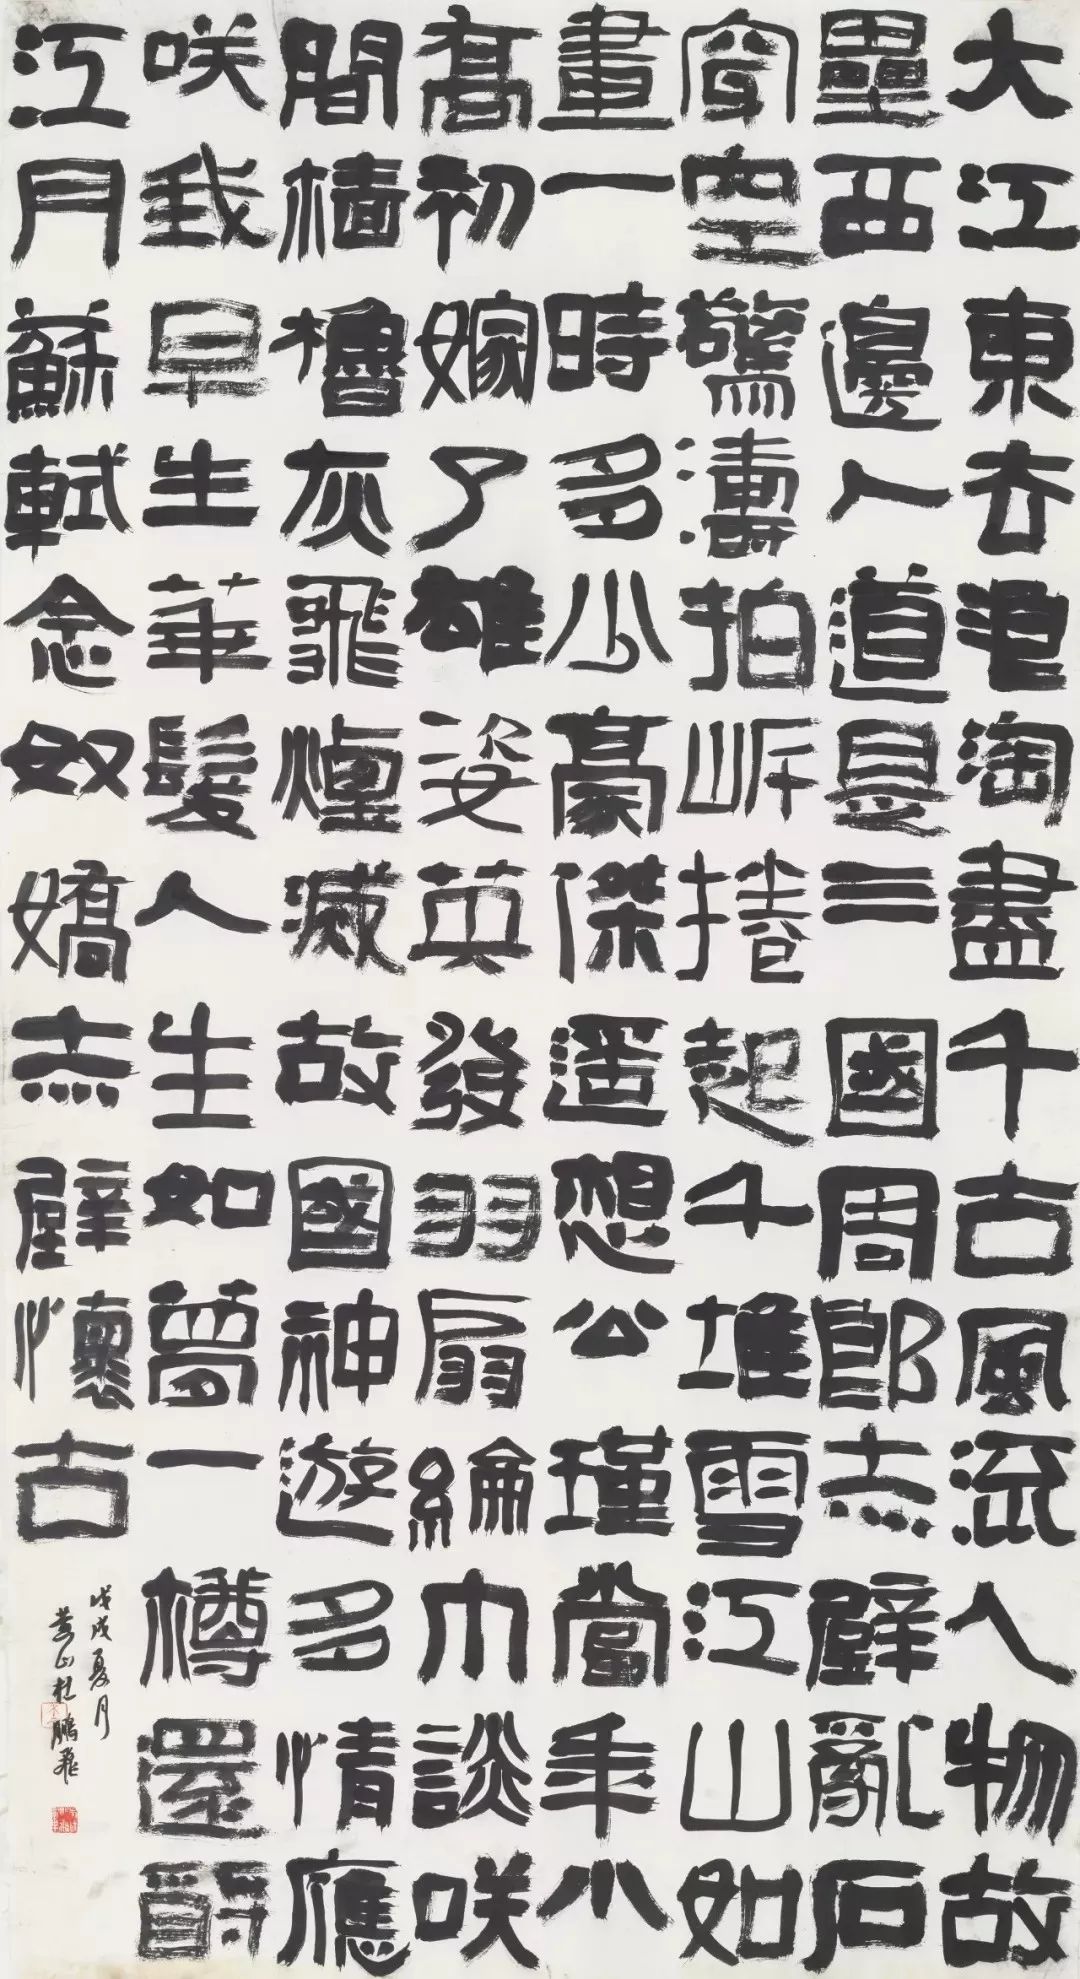 大江東去浪淘盡千古風流人物故
壘西邊人道是三國周郎赤壁亂石
穿空驚濤拍岸捲起千堆雪江山如
畫一時多少豪傑遥想公瑾當年小
喬初嫁了雄姿英發羽扇綸巾談咲
間檣櫓灰飛煙滅故國神遊多情應
咲我早生華髮人生如夢一樽還酹
江月蘇軾念奴嬌赤壁懷古
戊戌夏月
山杜鵬飛